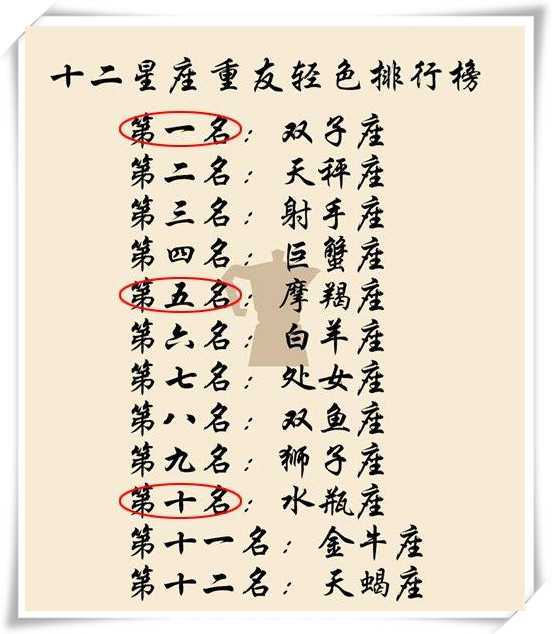 十二星座重友轻色排行榜
第一名：双子座
第二名：天秤座
第三名：射手座
第四名：巨蟹座
第五名：摩羯座
第六名：白羊座
第七名：处女座
第八名：双鱼座
第九名：狮子座
第十名：水瓶座
第十一名：金牛座
第十二名：天蝎座